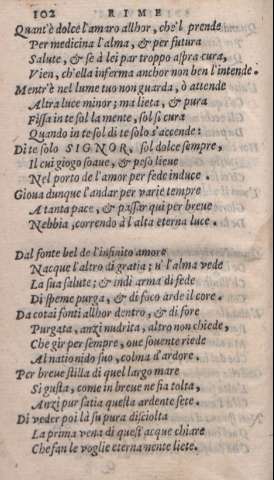 102 RIME
Quant'è dolce l'amaro allhor, che'l prende
Per medicina l'alma, & per futura
Salute, & se à lei par troppo aspra cura,
Vien, ch'ella inferma anchor non ben l'intende.
Mentr'è nel lume tuo non guarda, ò attende
Altra luce minor; ma lieta, & pura
Fissa in te sol la mente, sol si cura
Quando in te sol di te solo s'accende:
Di te solo SIGNOR, sol dolce sempre,
Il cui giogo soaue, & peso lieue
Nel porto de l'amor per fede induce.
Gioua dunque l'andar per varie tempre
A tanta pace, & passar qui per breue
Nebbia, correndo à l'alta eterna luce.
Dal fonte bel de l'infinito amore
Nacque l'altro di gratia; u' l'alma vede
La sua salute; & indi arma di fede
Di speme purga, & di foco arde il core.
Da cotai fonti allhor dentro, & di fore
Purgata, anzi nudrita, altro non chiede,
Che gir per sempre, oue souente riede
Al natio nido suo, colma d'ardore.
Per breue stilla di quel largo mare
Si gusta, come in breue ne sia tolta,
Anzi pur satia questa ardente sete.
Di veder poi là su pura disciolta
La prima vena di quest'acque chiare
Che fan le voglie eternamente liete.